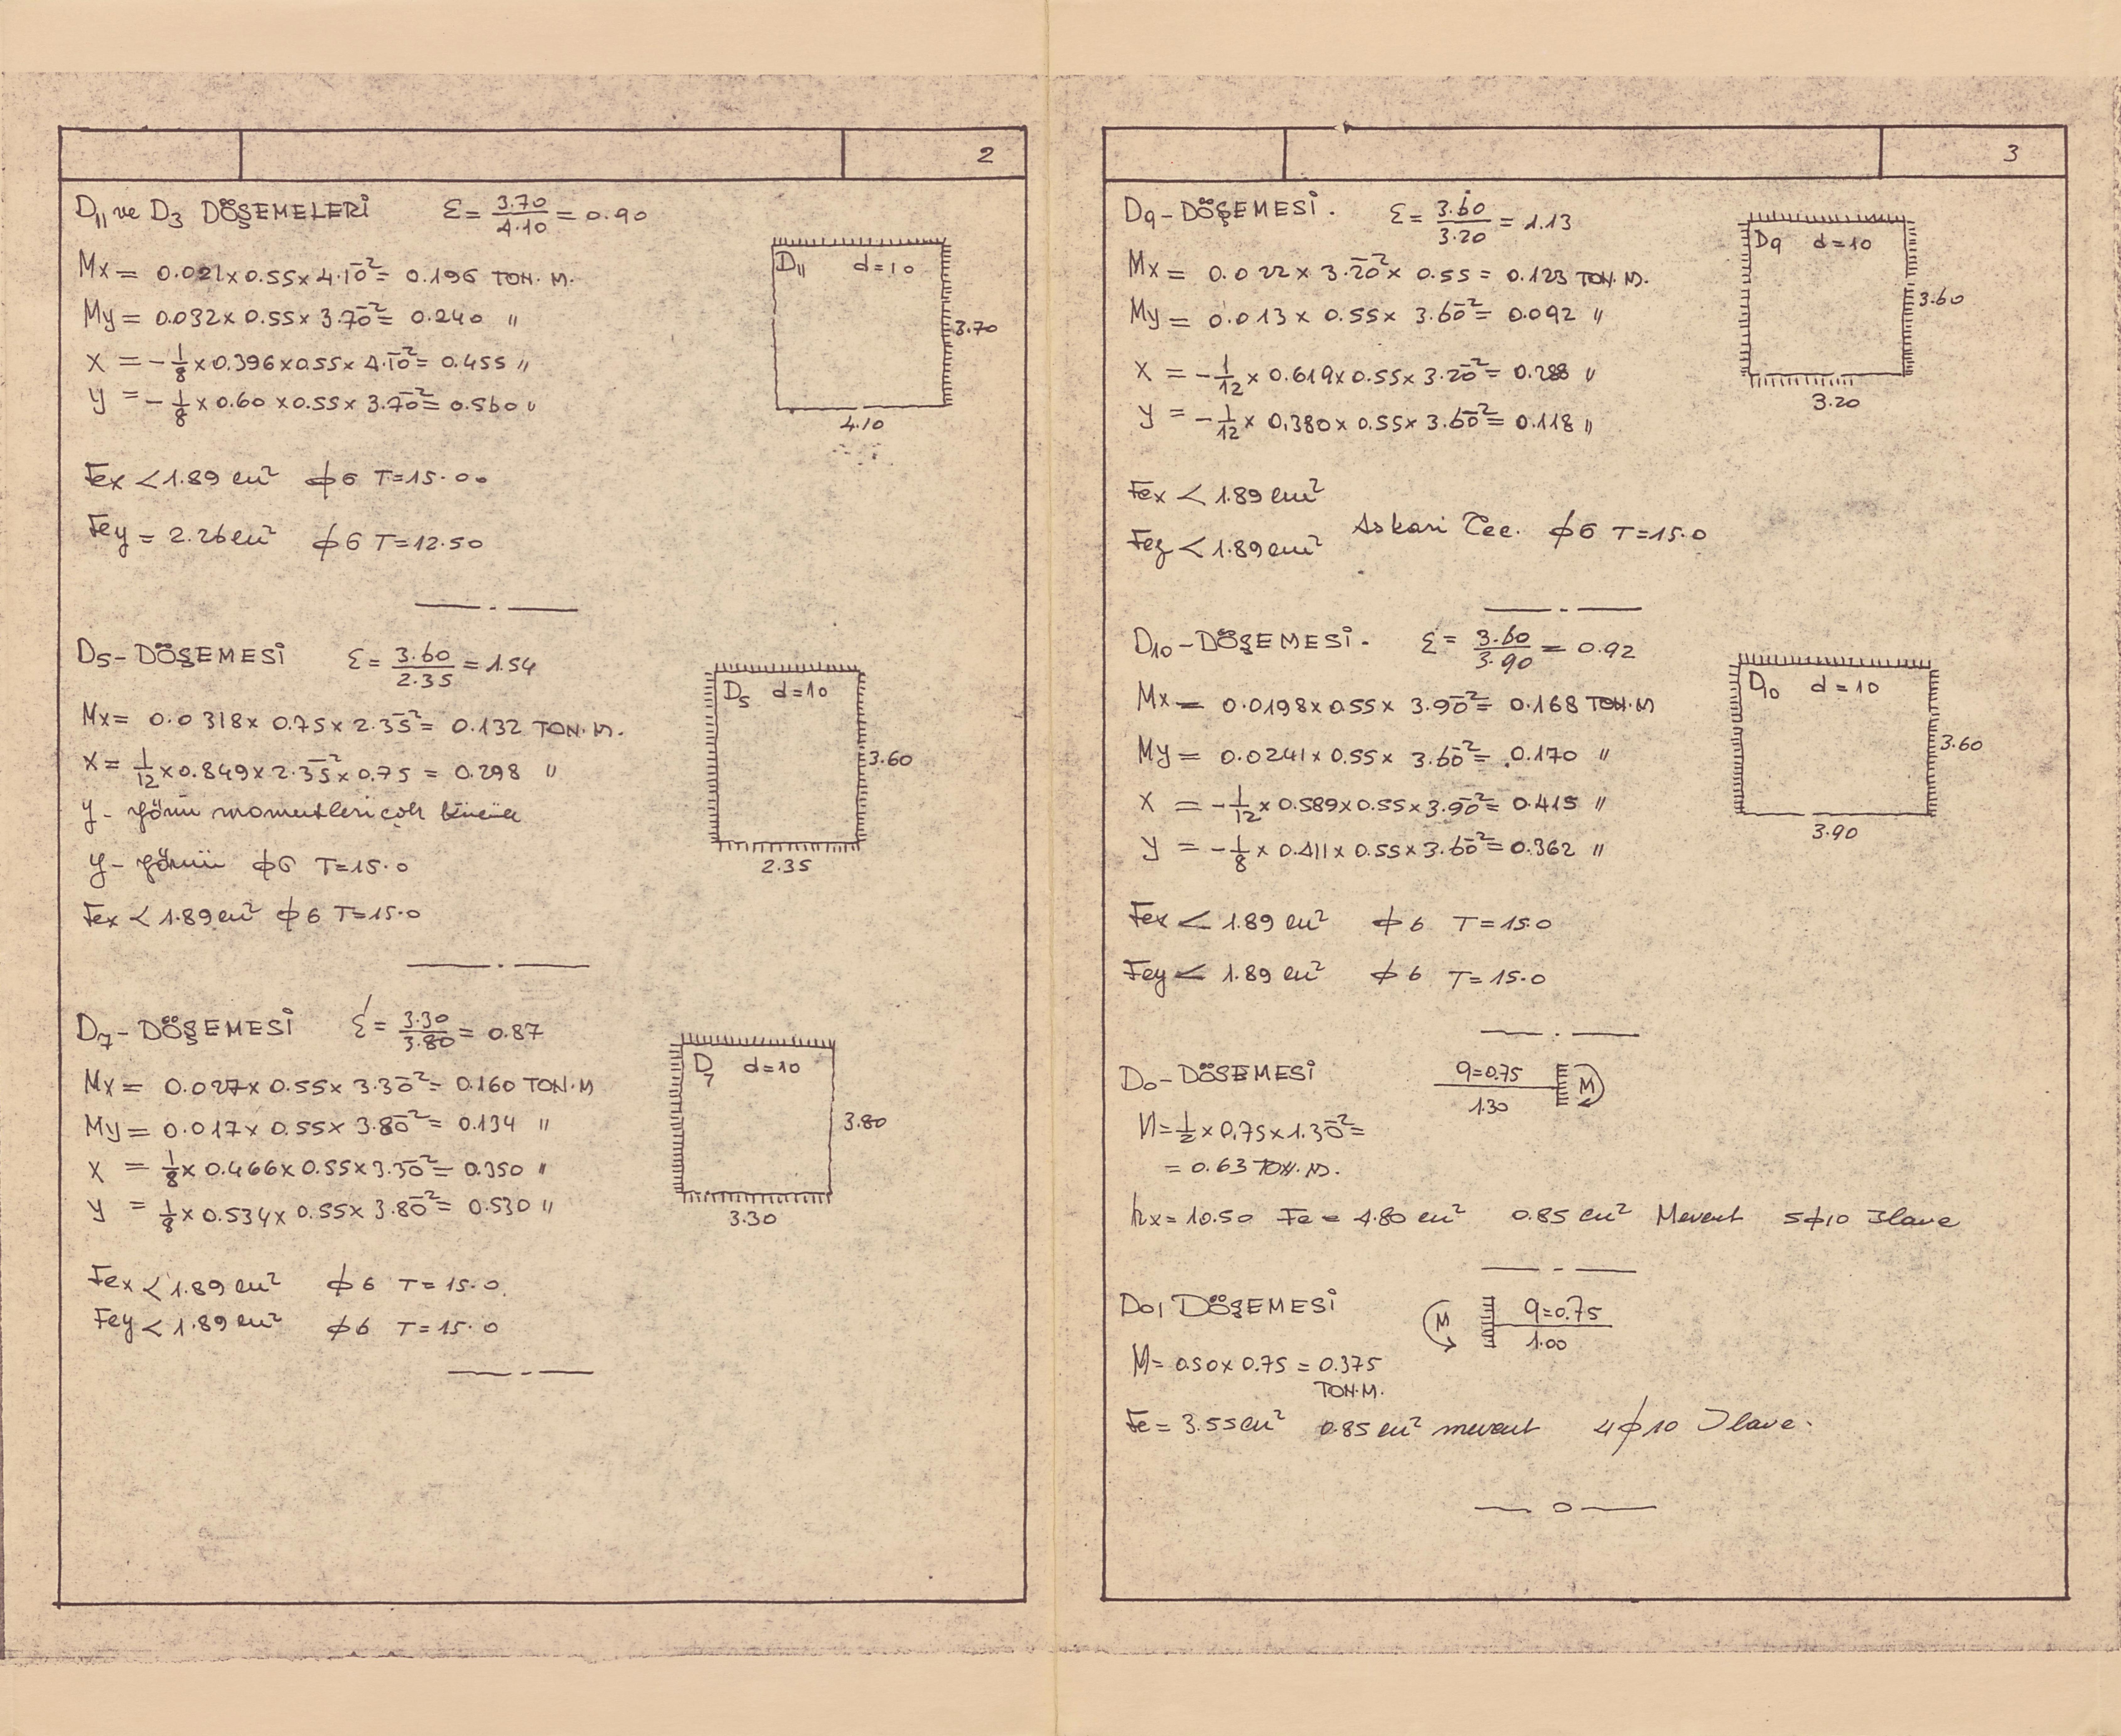 2
D11 ve D3 DÖŞEMELERİ Ɛ = 3.70/4.10 = 0.90
Mx = 0.021 x 0.55 x 4.10² = 0.196 TON. M.
My = 0.032 x 0.55 x 3.70² = 0.240 "
X = - 1/8 x 0.396 x 0.55 x 4.10² = 0.455 "
y = - 1/8 x 0.60 x 0.55 x 3.70² = 0.560 "
D11 d=10
3.70
4.10
Fex < 1.89 cm² ϕ6 T=15.00
Fey = 2.26 cm² ϕ6 T=12.50
D5 - DÖŞEMESİ Ɛ = 3.60/2.35 = 1.54
Mx = 0.0318 x 0.75 x 2.35² = 0.132 TON. M.
X = 1/12 x 0.849 x 2.35² x 0.75 = 0.298 "
y - yönü momentleri çok küçük
y - yönü ϕ6 T=15.0
Fex < 1.89 cm² ϕ6 T=15.0
D5 d=10
3.60
2.35
D7 - DÖŞEMESİ Ɛ = 3.30/3.80 = 0.87
Mx = 0.027 x 0.55 x 3.30² = 0.160 TON. M
My = 0.017 x 0.55 x 3.80² = 0.134 "
X = 1/8 x 0.466 x 0.55 x 3.30² = 0.350 "
y = 1/8 x 0.534 x 0.55 x 3.80² = 0.530 "
D7 d=10
3.80
3.30
Fex < 1.89 cm² ϕ6 T=15.0
Fey < 1.89 cm² ϕ6 T=15.0
3
D9 - DÖŞEMESİ. Ɛ = 3.60/3.20 = 1.13
Mx = 0.022 x 3.20² x 0.55 = 0.123 TON. M.
My = 0.013 x 0.55 x 3.60² = 0.092 "
X = - 1/12 x 0.619 x 0.55 x 3.20² = 0.288 "
y = - 1/12 x 0.380 x 0.55 x 3.60² = 0.118 "
D9 d=10
3.60
3.20
Fex < 1.89 cm²
Askari Tec. ϕ6 T=15.0
Fey < 1.89 cm²
D10 - DÖŞEMESİ. Ɛ = 3.60/3.90 = 0.92
Mx = 0.0198 x 0.55 x 3.90² = 0.168 TON. M
My = 0.0241 x 0.55 x 3.60² = 0.170 "
X = - 1/12 x 0.589 x 0.55 x 3.90² = 0.415 "
y = - 1/8 x 0.411 x 0.55 x 3.60² = 0.362 "
D10 d=10
3.60
3.90
Fex < 1.89 cm² ϕ6 T=15.0
Fey < 1.89 cm² ϕ6 T=15.0
D0 - DÖSEMESİ q=0.75 M
1.30
M = 1/2 x 0.75 x 1.30² =
= 0.63 TON. M.
hx = 10.50 Fe = 4.80 cm² 0.85 cm² Mevcut 5ϕ10 İlave
D01 DÖŞEMESİ M q=0.75
1.00
M = 0.50 x 0.75 = 0.375
TON. M.
Fe = 3.55 cm² 0.85 cm² mevcut 4ϕ10 İlave.